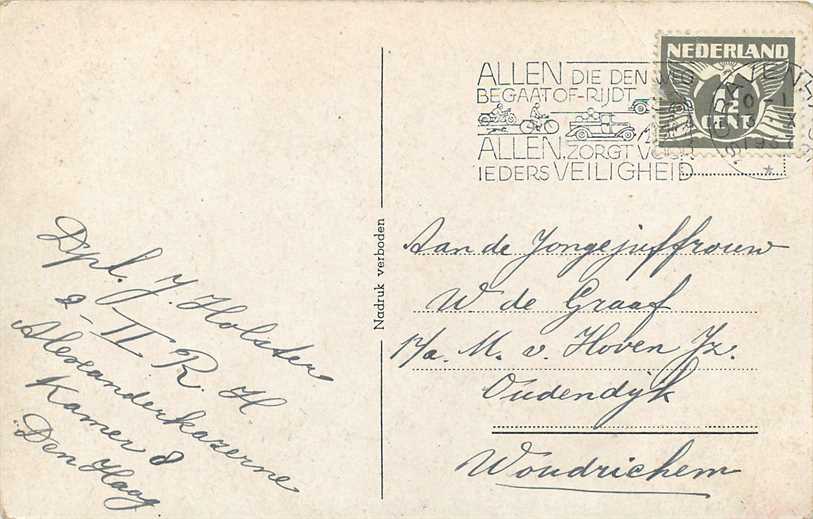 NEDERLAND
1½
CENT
ALLEN DIE DEN WEG
BEGAAT OF-RIJDT
ALLEN, ZORGT VOOR
IEDERS VEILIGHEID
Nadruk verboden
Dpl. J. Holster
2-II R. H.
Alexanderkazerne
Kamer 8
Den Haag
Aan de Jongejuffrouw
W. de Graaf
p/a. M. v. Hoven Jz.
Oudendijk
Woudrichem